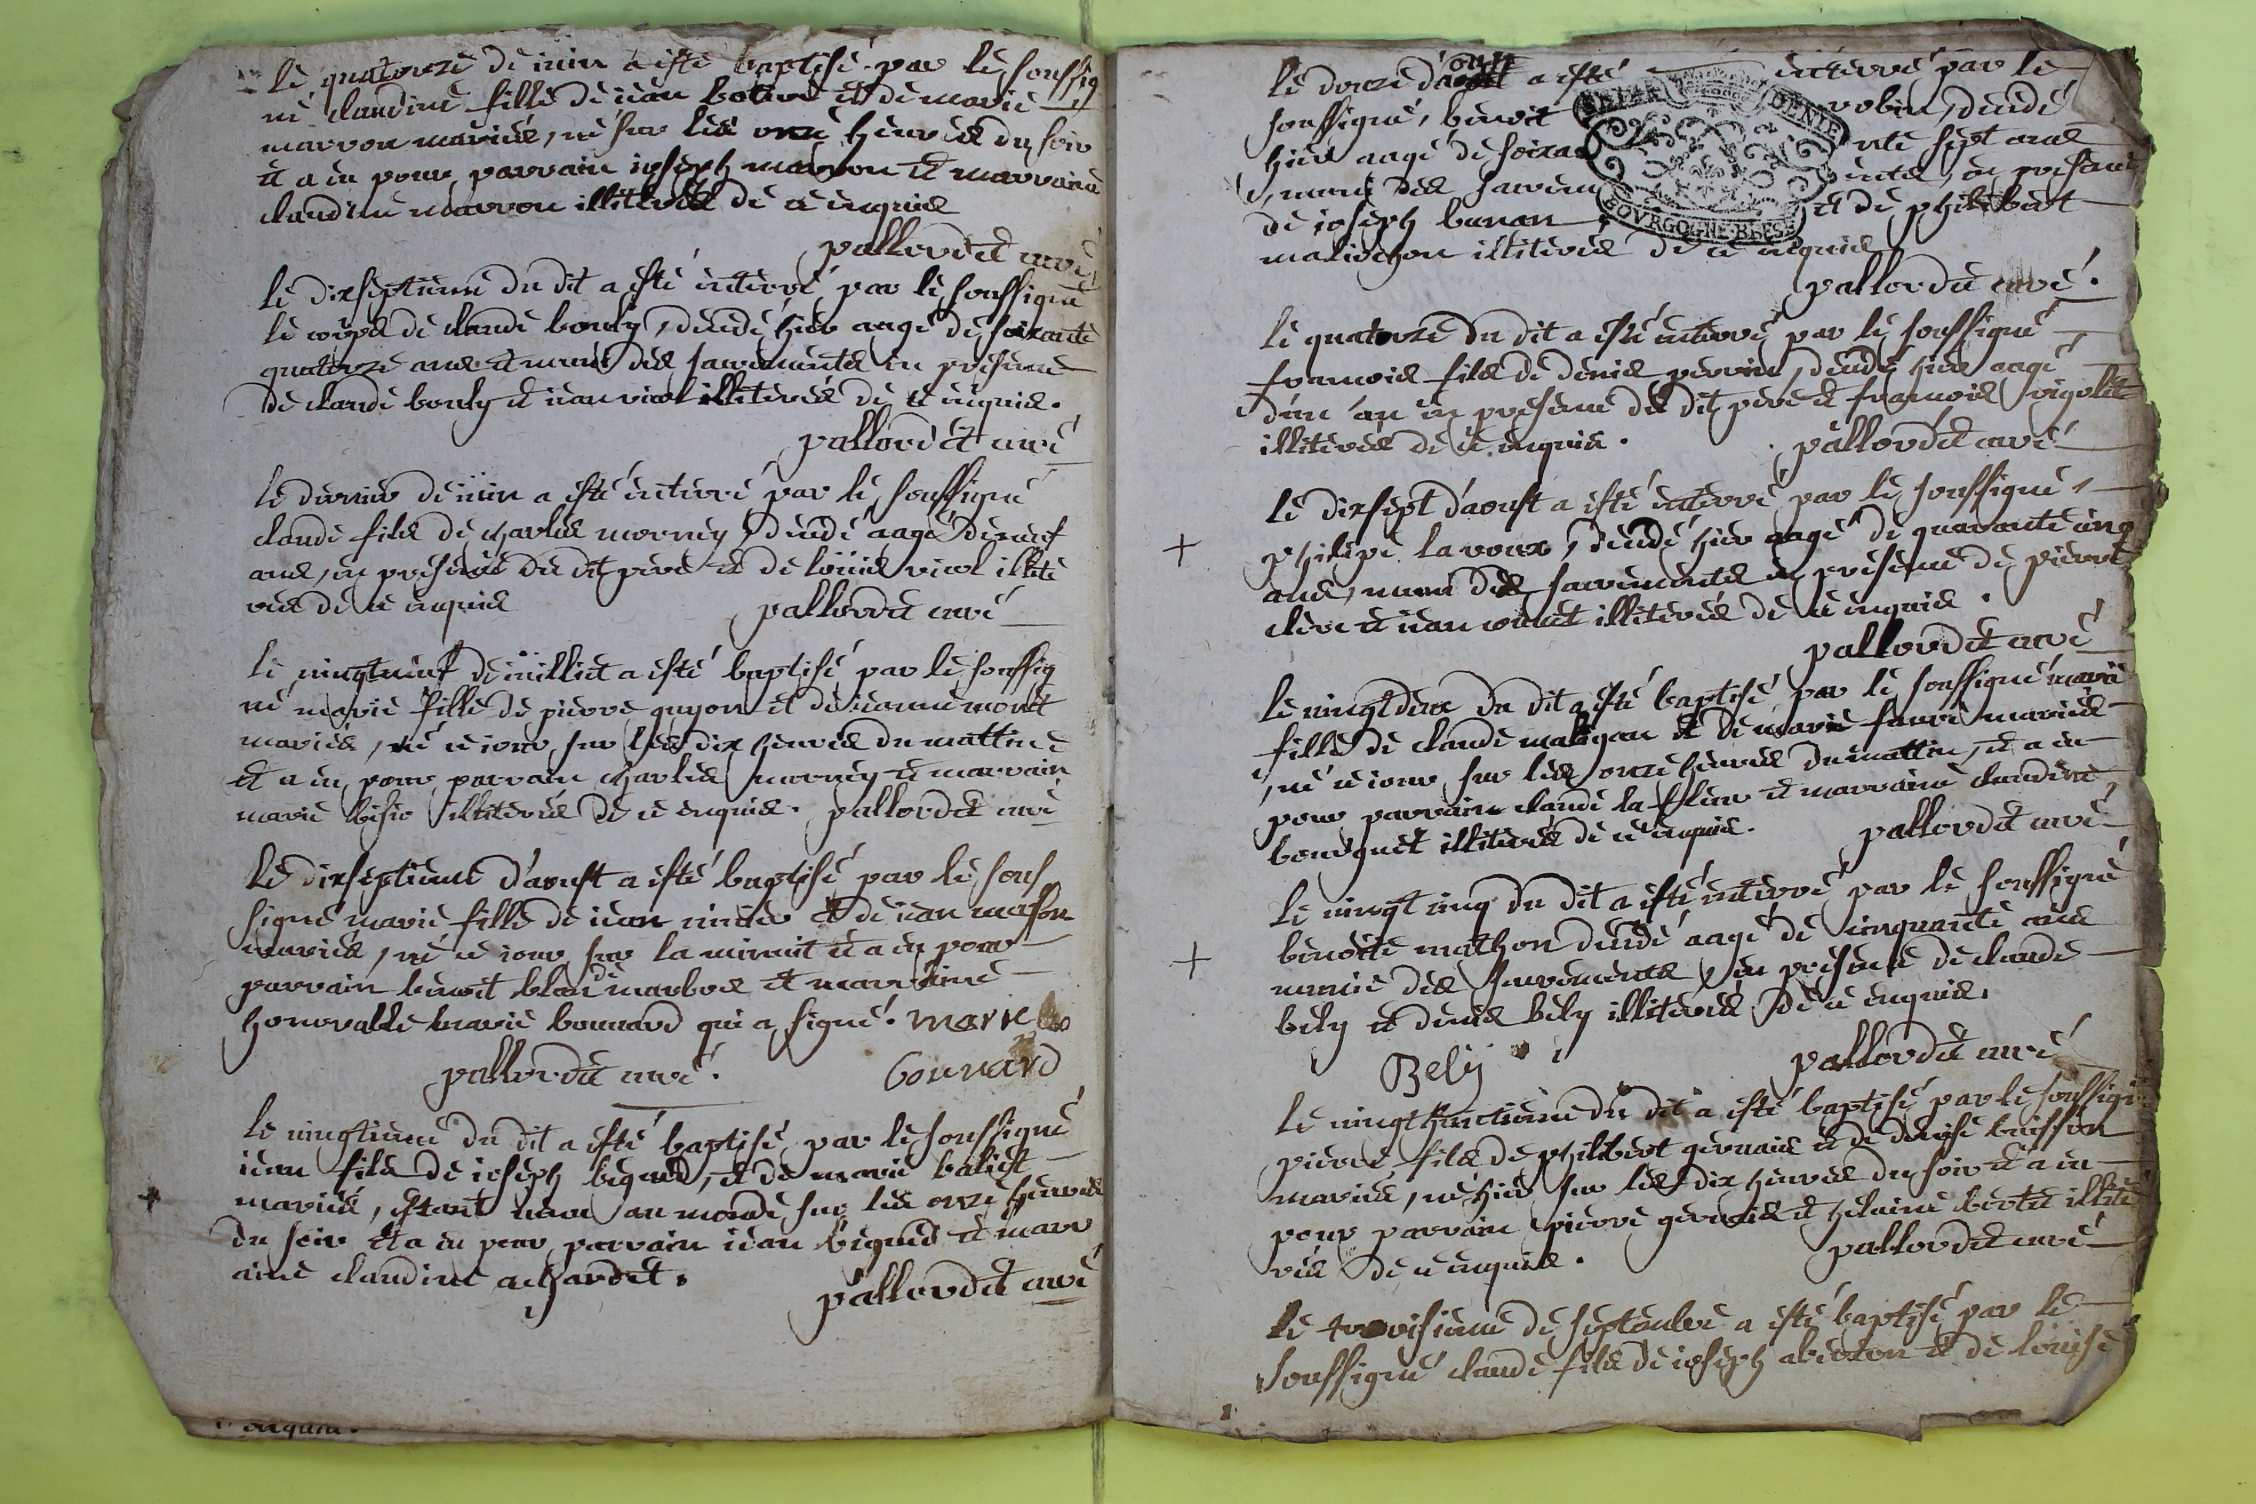 le quatorze de iuin a esté baptisé par le soussig
né claudine fille de iean et de marie
marron mariés, né sur les onze heures du soir
et a eu pour parrain ioseph marron et marraine
claudine marron illiterés de ce enquis
pallordet curé
le dixseptieme du dit a esté enterré par le soussigné
le corps de claude bouly, decedé hier aagé de soixante
quatorze ans et muni des sacrements en presence
de claude bouly et iean viol illiterés de ce enquis.
pallordet curé
le dernier de iuin a esté enterré par le soussigné
claude fils de charles morney, decedé aagé de neuf
ans, en presence du dit pere et de loüis viol illite
rés de ce enquis pallordet curé
le vingtneuf de iuilliet a esté baptisé par le soussig
né marie fille de pierre guyon et de ieanne monet
mariés, né ce iour sur les dix heures du mattin
et a eu pour parrain charles morney et marrain
marie illiterés de ce enquis. pallordet curé
le dixseptieme d'aoust a esté baptisé par le sous
signé marie fille de iean et de iean masson
mariés, né ce iour sur la minuit et a eu pour
parrain benoit blan de marbos et marraine
honorable marie bonnard qui a signé. marie
pallordet curé. bonnard
le vingtieme du dit a esté baptisé par le soussigné
iean fils de ioseph begued, et de marie baliet
mariés, estant venu au monde sur les onze heures
du soir et a eu pour parrain iean begued et marr
aine claudine achardet.
pallordet curé
enquis.
le douze d'aoust oust a esté enterré par le
soussigné, benoit robin, decedé
hier aagé de soixa nte sept ans
, muni des sacrem ents, en presence
de ioseph bunan et de philibert
malivchon illiterés de ce enquis
pallordet curé.
le quatorze du dit a esté enterré par le soussigné
francois fils de denis perrin, decedé hier aagé
d'un an en presence du dit pere et francois rigolet
illiterés de ce enquis. pallordet curé
le dixsept d'aoust a esté enterré par le soussigné,
+ philipe laroux, decedé hier aagé de quarante cinq
ans, muni des sacrements en presence de pierre
clere et iean illiterés de ce enquis.
pallordet curé
le vingtdeux du dit a esté baptisé par le soussigné marie
fille de claude maligon et de marie faure mariés
, né ce iour sur les onze heures du mattin, et a eu
pour parrain claude la fleur et marraine claudine
bourguet illiterés de ce enquis. pallordet curé
le vingt cinq du dit a esté enterré par le soussigné
+ benoite mathon decedé aagé de cinquante ans
munie des sacrements, en presence de claude
bely et denis bely illiterés de ce enquis.
Bely pallordet curé
le vingthuictieme du dit a esté baptisé par le soussigné
pierre fils de philibert gervais et de denise buisson
mariés, né hier sur les dix heures du soir et a eu
pour parrain pierre gervais et helaine illite
rés de ce enquis. pallordet curé
le troisieme de septembre a esté baptisé par le
soussigné claude fils de ioseph et de louise